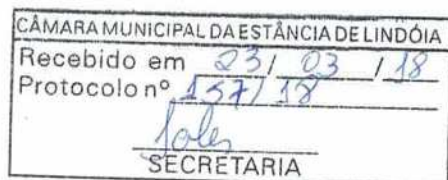 CÂMARA MUNICIPAL DA ESTÂNCIA DE LINDÓIA
Recebido em 23/ 03 /18
Protocolo nº 157/18
SECRETARIA